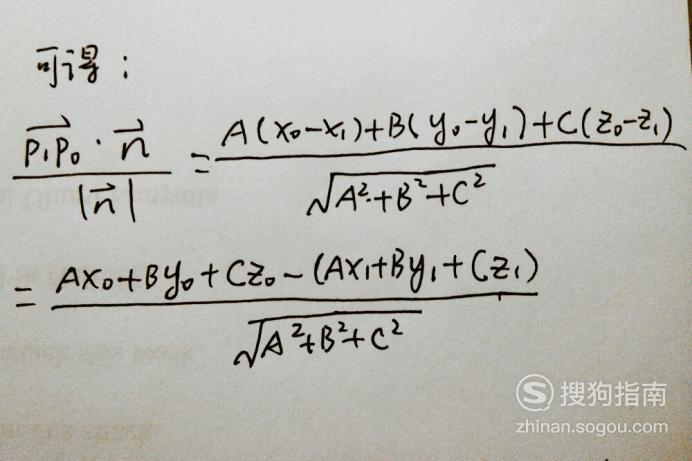 可得：
\frac{\overrightarrow{P_1P_0} \cdot \vec{n}}{|\vec{n}|} = \frac{A(x_0-x_1)+B(y_0-y_1)+C(z_0-z_1)}{\sqrt{A^2+B^2+C^2}}
= \frac{Ax_0+By_0+Cz_0-(Ax_1+By_1+Cz_1)}{\sqrt{A^2+B^2+C^2}}
S 搜狗指南
zhinan.sogou.com